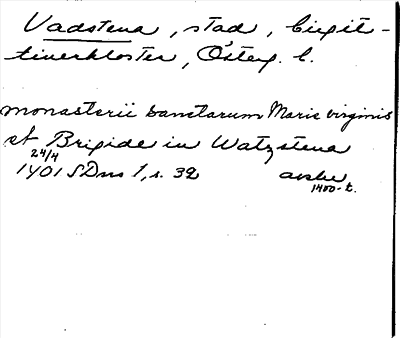 Vadstena, stad, birgit-
tinerkloster, Österg. l.
monasterii sanctarum Marie virginis
et Brigide in Watzstena
24/4
1401 SDns 1, s. 32 avskr.
1400-t.